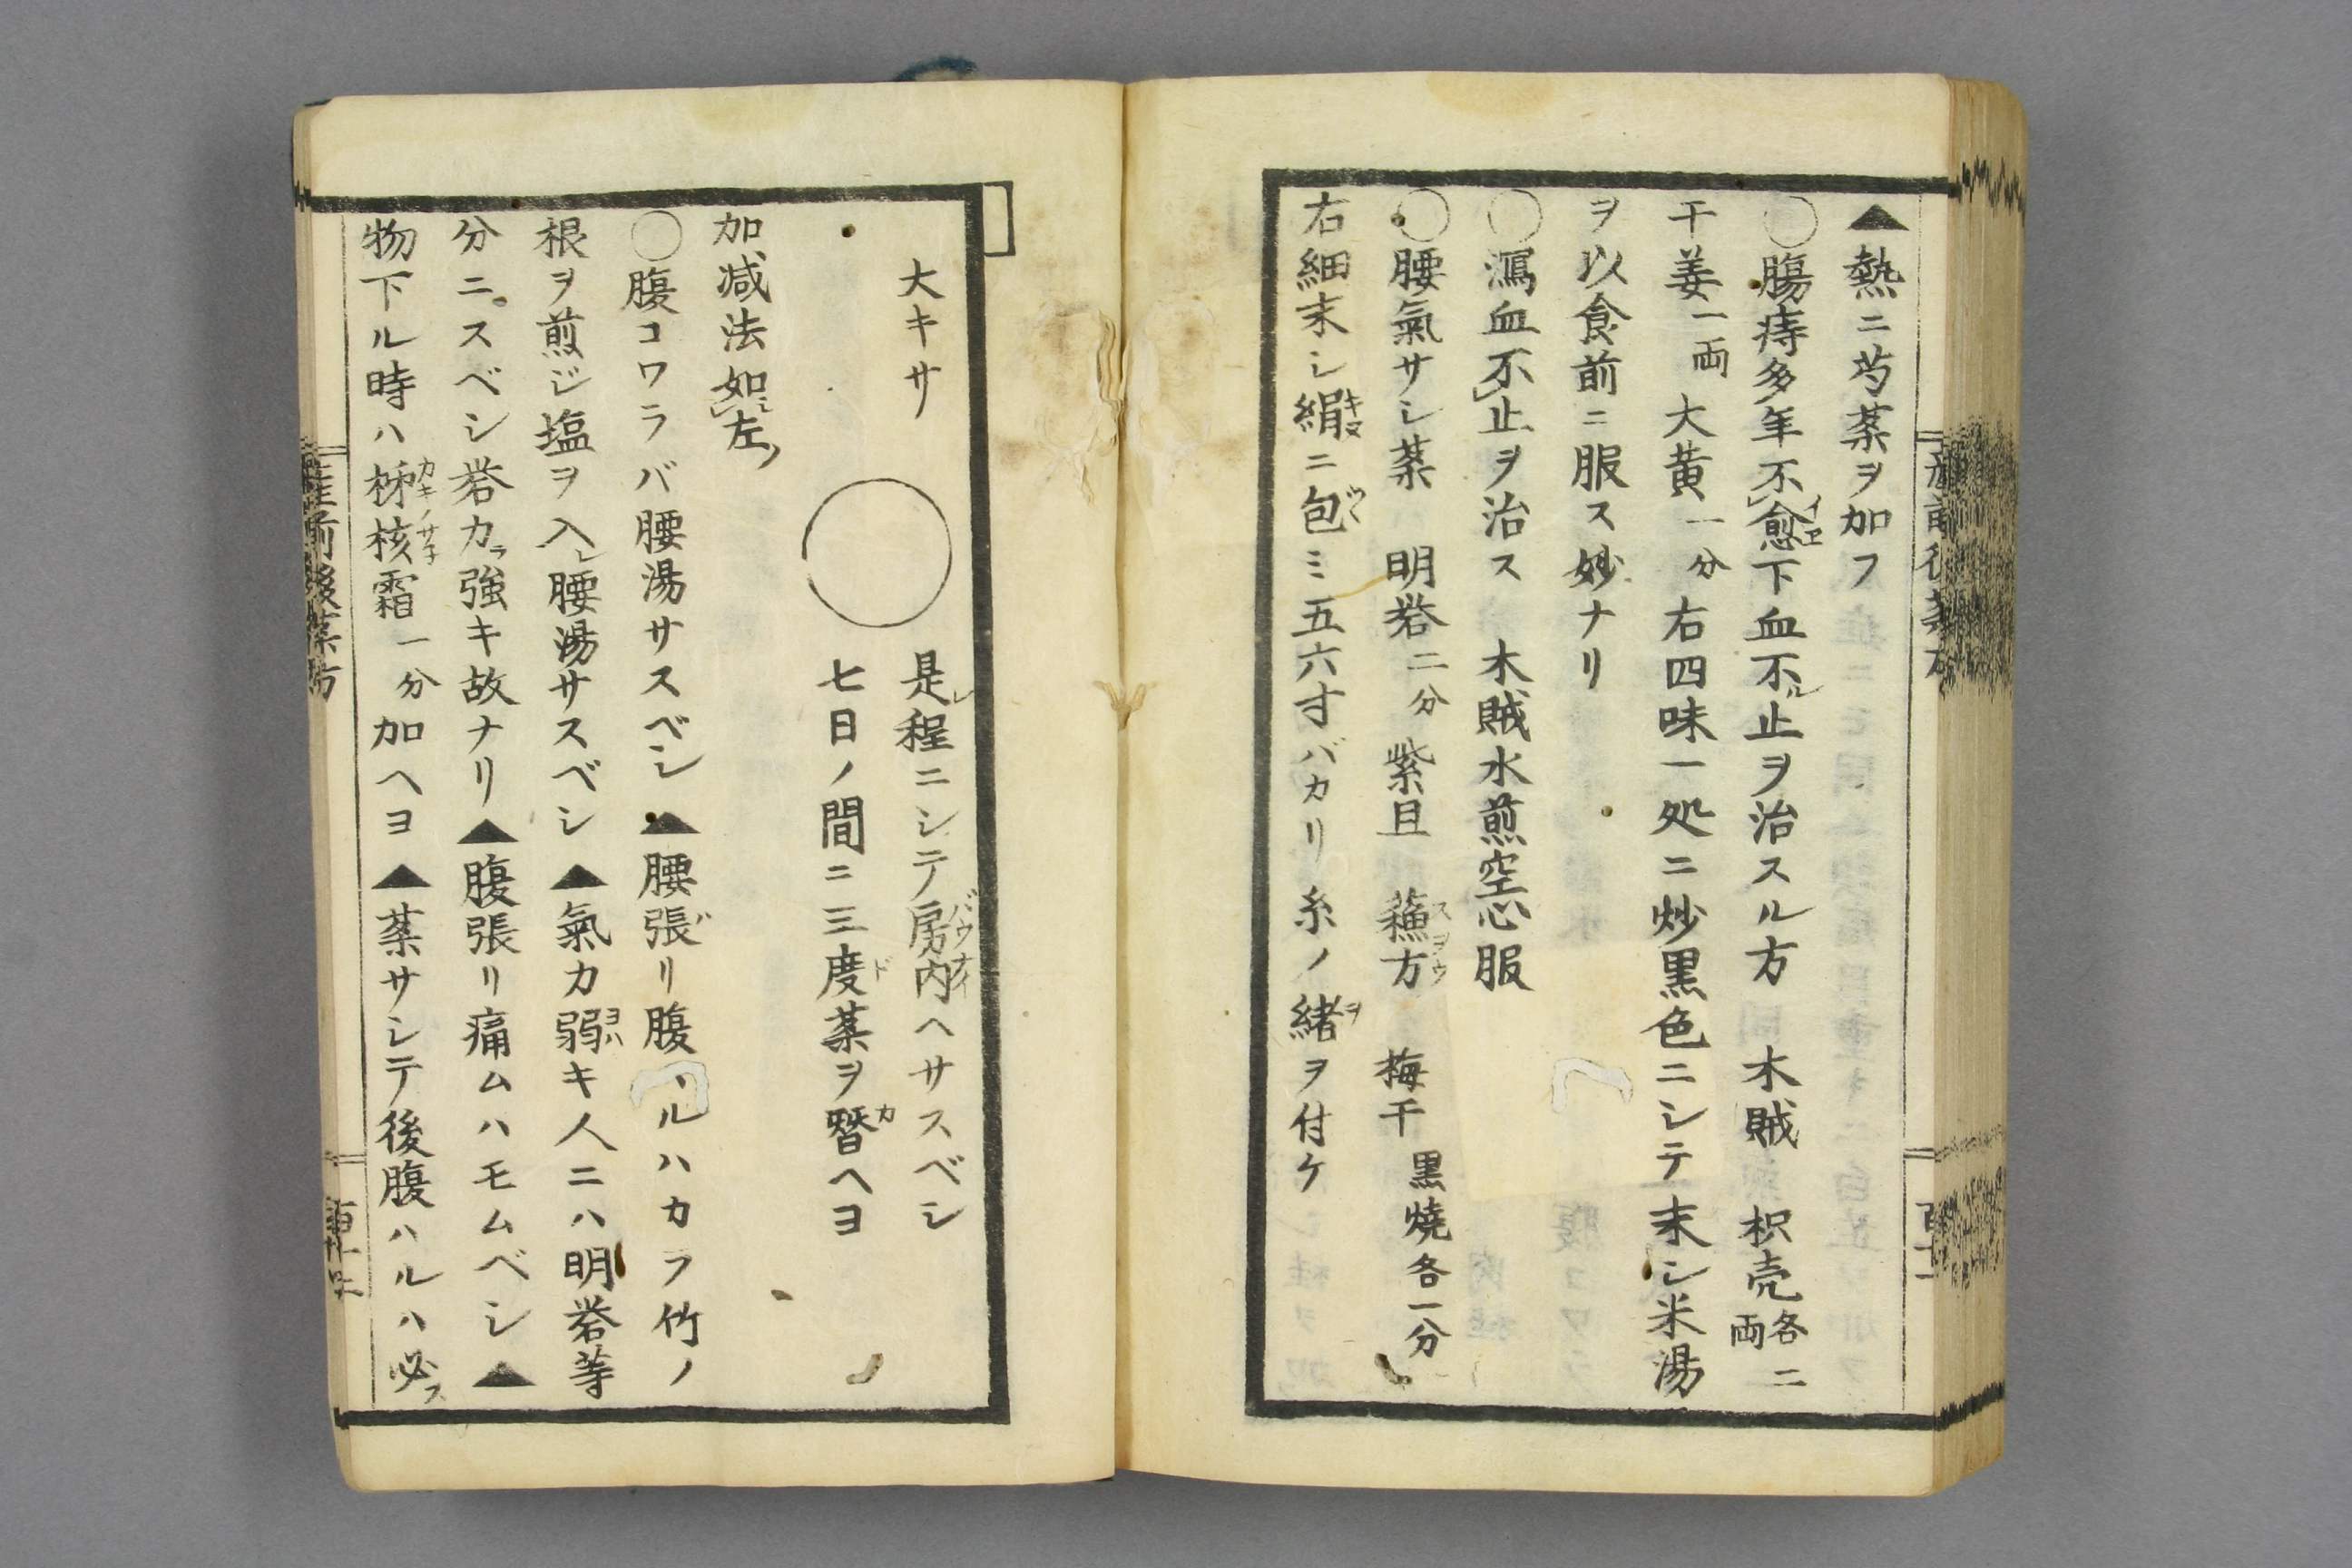 ▲熱ニ芍薬ヲ加フ
○腸痔多年不愈下血不止ヲ治スル方 木賊 枳売各二両
干姜一両 大黄一分 右四味一処ニ炒黒色ニシテ末シ米湯
ヲ以食前ニ服ス妙ナリ
○瀉血不止ヲ治ス 木賊水煎空心服
○腰氣サシ薬 明礬二分 紫且 蘓方 梅干黒燒各一分
右細末シ絹ニ包ミ五六寸バカリ糸ノ緒ヲ付ケ
大キサ ○ 是程ニシテ房内ヘサスベシ
七日ノ間ニ三度薬ヲ替ヘヨ
加减法如左
○腹コワラバ腰湯サスベシ▲腰張リ腹ハルハカラ竹ノ
根ヲ煎ジ塩ヲ入腰湯サスベシ▲氣カ弱キ人ニハ明礬等
分ニスベシ礬カ強キ故ナリ▲腹張リ痛ムハモムベシ▲
物下ル時ハ柹核霜一分加ヘヨ▲薬サシテ後腹ハルハ必ス
産前後薬方